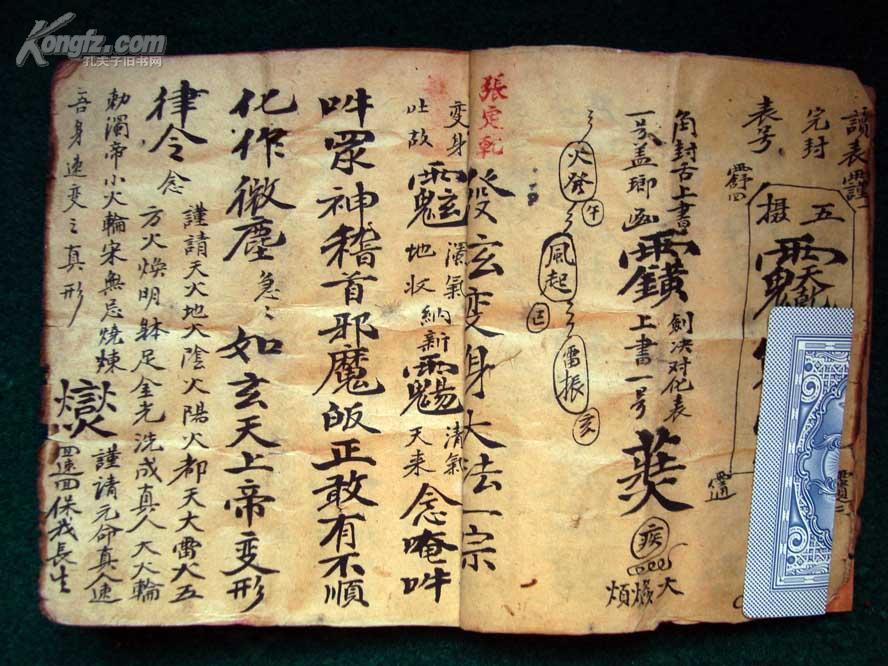 Kongfz.com
孔夫子旧书网
讀表
完封
表号
五
摄
角封舌上書
一号盖瑯函
劍决对化表
上書一号
疾
大
煩
火發
午
風起
正
雷振
亥
張定乾
發玄变身大法一宗
变身
此故
濁氣
地收
納新
清氣
天来
念唵吽
吽眾神稽首邪魔皈正敢有不順
化作微塵
急〻
如玄天上帝变形
律令
念
謹請天火地火陰火陽火都天大雷火五
方火煥明躰足金光洗成真人大火輪
勅濁帝小火輪宋無忌燒煉
吾身速变之真形
謹請元命真人速
保我長生